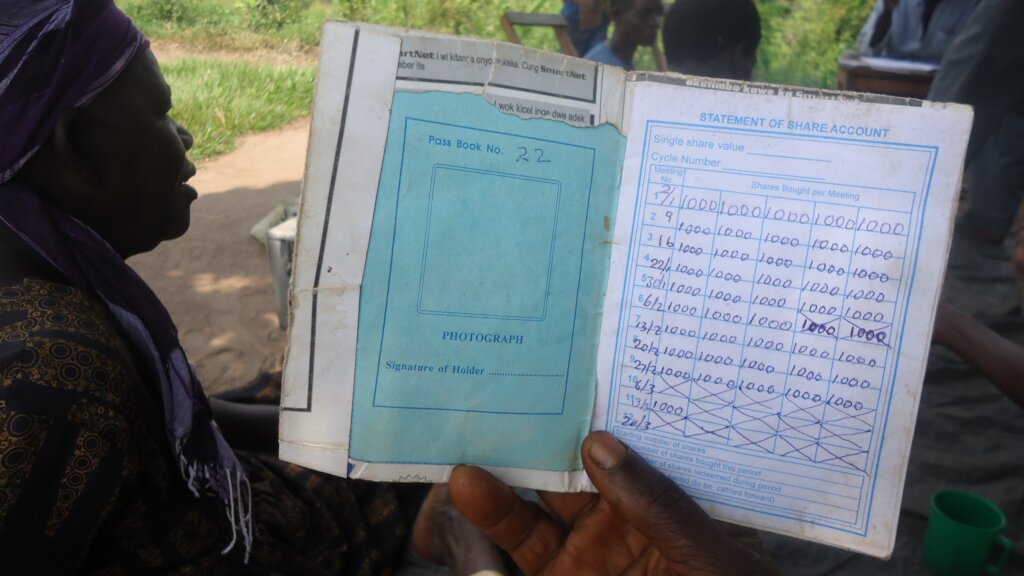 SmartNet
wok kicel inge dwe adek.
Pass Book No. 22
PHOTOGRAPH
Signature of Holder
STATEMENT OF SHARE ACCOUNT
Single share value
Cycle Number
Meeting No.
Shares Bought per Meeting
1 2/1 1000 1000 1000 1000 1000
2 9 1000 1000 1000 1000 1000
3 16 1000 1000 1000 1000 1000
4 1000 1000 1000 1000 1000
5 30/1 1000 1000 1000 1000 1000
6 6/2 1000 1000 1000 1000 1000
7 13/2 1000 1000 1000 1000 1000
20/2 1000 1000 1000 1000 1000
9 27/2 1000 1000 1000 1000 1000
10 6/3
11 13/3 1000
20/3
Starting number of shares
number of shares bought this period
of shares redeemed during period
(to be carried forward)